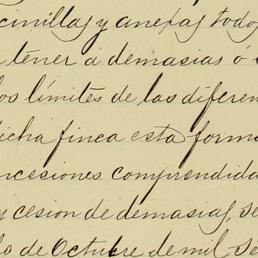 cinillas y anexas todo
tener á demasias ó
los límites de las diferen
dicha finca esta forma
ncesiones comprendida
y cesion de demasias, se
de Octubre de mil se